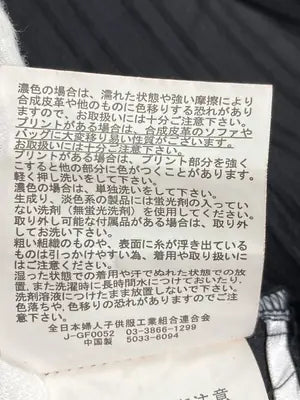 濃色の場合は、濡れた状態や強い摩擦により
合成皮革や他のものに色移りする恐れがあり
ますので、お取扱いには十分ご注意下さい。
プリントがある場合は、合成皮革のソファや
バッグに大変移り易い性質がございます。
お取扱いには十分ご注意下さい。
プリントがある場合は、プリント部分を強く
こすると他の部分に色がつくことがあります。
軽く押し洗いをして下さい。
濃色の場合は、単独洗いをして下さい。
生成り、淡色系の製品には蛍光剤の入ってい
ない洗剤（無蛍光洗剤）を使用してください。
取り外し可能な付属品がある場合は、取り外
してお洗い下さい。
粗い組織のものや、表面に糸が浮き出ている
ものは引っかけやすい為、着用や取り扱いに
はご注意ください。
湿った状態での着用や汗でぬれた状態での放
置、また洗濯時に長時間水につけておいたり、
洗剤溶液につけたまま放置しないで下さい。
色落ちや、色移りの恐れがありますのでご
注意下さい。
全日本婦人子供服工業組合連合会
J-GF0052 03-3866-1299
中国製 5033-6094